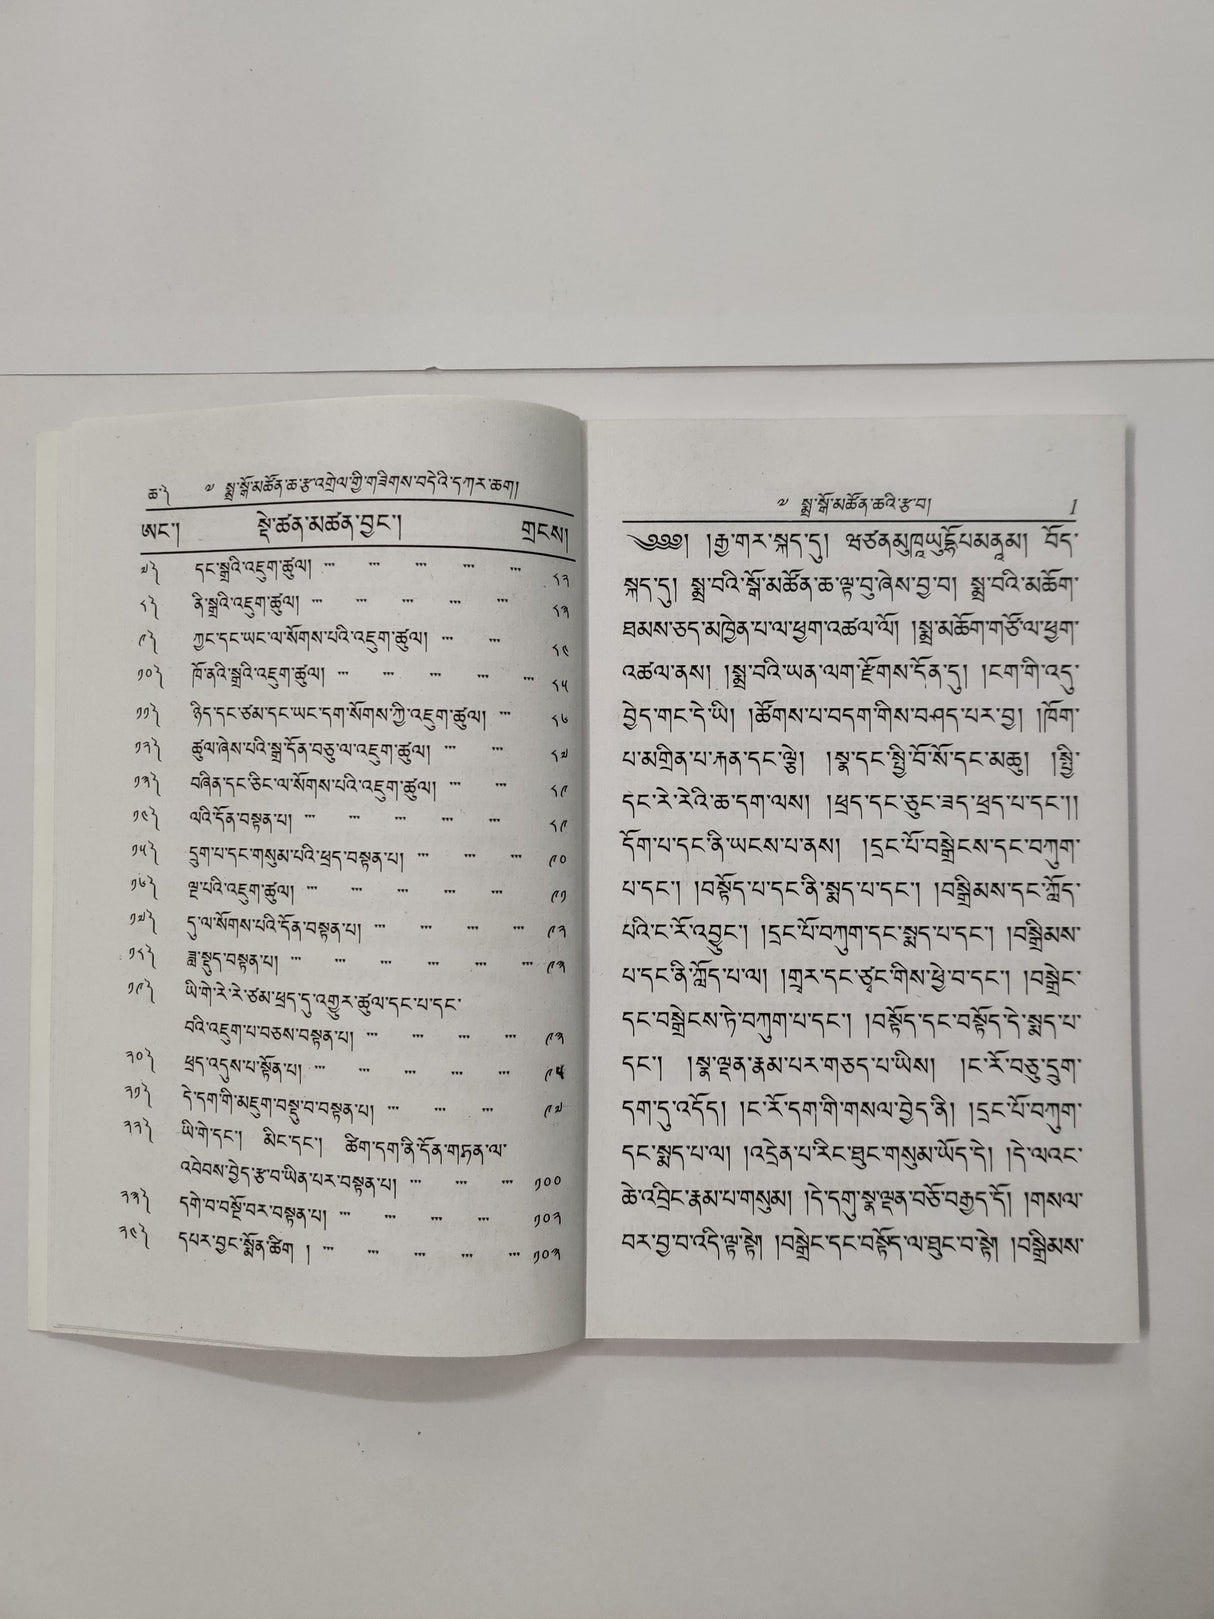 ཆ༽ ༧ སྨྲ་སྒོ་མཚོན་ཆ་རྩ་འགྲེལ་གྱི་གཟིགས་བདེའི་དཀར་ཆག།
ཨང་། སྡེ་ཚན་མཚན་བྱང་། གྲངས།
༧༽ དང་སྒྲའི་འཇུག་ཚུལ། … … … … … ༨༢
༨༽ ནི་སྒྲའི་འཇུག་ཚུལ། … … … … … ༨༣
༩༽ ཀྱང་དང་ཡང་ལ་སོགས་པའི་འཇུག་ཚུལ། … … ༨༤
༡༠༽ ཁོ་ནའི་སྒྲའི་འཇུག་ཚུལ། … … … … … ༨༥
༡༡༽ ཉིད་དང་ཙམ་དང་ཡང་དག་སོགས་ཀྱི་འཇུག་ཚུལ། … ༨༦
༡༢༽ ཚུལ་ཞེས་པའི་སྒྲ་དོན་བཅུ་ལ་འཇུག་ཚུལ། … … ༨༧
༡༣༽ བཞིན་དང་ཅིང་ལ་སོགས་པའི་འཇུག་ཚུལ། … … ༨༩
༡༤༽ ལའི་དོན་བསྟན་པ། … … … … … ༨༩
༡༥༽ དྲུག་པ་དང་གསུམ་པའི་ཕྲད་བསྟན་པ། … … … ༩༠
༡༦༽ ལྔ་པའི་འཇུག་ཚུལ། … … … … … ༩༡
༡༧༽ དུ་ལ་སོགས་པའི་དོན་བསྟན་པ། … … … … ༩༢
༡༨༽ ཟླ་སྡུད་བསྟན་པ། … … … … … … ༩༣
༡༩༽ ཡི་གེ་རེ་རེ་ཙམ་ཕྲད་དུ་འགྱུར་ཚུལ་དང་པ་དང་
བའི་འཇུག་པ་བཅས་བསྟན་པ། … … … … ༩༣
༢༠༽ ཕྲད་འདུས་པ་སྟོན་པ། … … … … … ༩༥
༢༡༽ དེ་དག་གི་མཇུག་བསྡུ་བ་བསྟན་པ། … … … ༩༧
༢༢༽ ཡི་གེ་དང་། མིང་དང་། ཚིག་དག་ནི་དོན་གཏན་ལ་
འབེབས་བྱེད་རྩ་བ་ཡིན་པར་བསྟན་པ། … … … ༡༠༠
༢༣༽ དགེ་བ་བསྔོ་བར་བསྟན་པ། … … … … ༡༠༢
༢༤༽ དཔར་བྱང་སྨོན་ཚིག ། … … … … … ༡༠༣
༧ སྨྲ་སྒོ་མཚོན་ཆའི་རྩ་བ། 1
༄༅༅། །རྒྱ་གར་སྐད་དུ། བོད་
སྐད་དུ། སྨྲ་བའི་སྒོ་མཚོན་ཆ་ལྟ་བུ་ཞེས་བྱ་བ། སྨྲ་བའི་མཆོག་
ཐམས་ཅད་མཁྱེན་པ་ལ་ཕྱག་འཚལ་ལོ། །སྨྲ་མཆོག་གཙོ་ལ་ཕྱག་
འཚལ་ནས། །སྨྲ་བའི་ཡན་ལག་རྫོགས་དོན་དུ། །ངག་གི་འདུ་
བྱེད་གང་དེ་ཡི། །ཚོགས་པ་བདག་གིས་བཤད་པར་བྱ། །ཁོག་
པ་མགྲིན་པ་རྐན་དང་ལྕེ། །སྣ་དང་སྤྱི་བོ་སོ་དང་མཆུ། །སྤྱི་
དང་རེ་རེའི་ཆ་དག་ལས། །ཕྲད་དང་ཅུང་ཟད་ཕྲད་པ་དང་།།
དོག་པ་དང་ནི་ཡངས་པ་ནས། །དྲང་པོ་བསྒྲེངས་དང་བཀུག་
པ་དང་། །བསྟོད་པ་དང་ནི་སྨད་པ་དང་། །བསྒྲིམས་དང་ཀློད་
པའི་ང་རོ་འབྱུང་། །དྲང་པོ་བཀུག་དང་སྨད་པ་དང་། །བསྒྲིམས་
པ་དང་ནི་ཀློད་པ་ལ། །གྲྭར་དང་ཙྭང་གིས་ཕྱེ་བ་དང་། །བསྒྲེང་
དང་བསྒྲེངས་ཏེ་བཀུག་པ་དང་། །བསྟོད་དང་བསྟོད་དེ་སྨད་པ་
དང་། །སྣ་ལྡན་རྣམ་པར་གཅད་པ་ཡིས། །ང་རོ་བཅུ་དྲུག་
དག་ཏུ་འདོད། །ང་རོ་དག་གི་གསལ་བྱེད་ནི། །དྲང་པོ་བཀུག་
དང་སྨད་པ་ལ། །འདྲེན་པ་རིང་ཐུང་གསུམ་ཡོད་དེ། །དེ་ལའང་
ཆེ་འབྲིང་རྣམ་པ་གསུམ། །དེ་དགུ་སྣ་ལྡན་བཅོ་བརྒྱད་དོ། །གསལ་
བར་བྱ་བ་འདི་ལྟ་སྟེ། །བསྒྲེང་དང་བསྟོད་ལ་ཐུང་བ་སྟེ། །བསྒྲིམས་